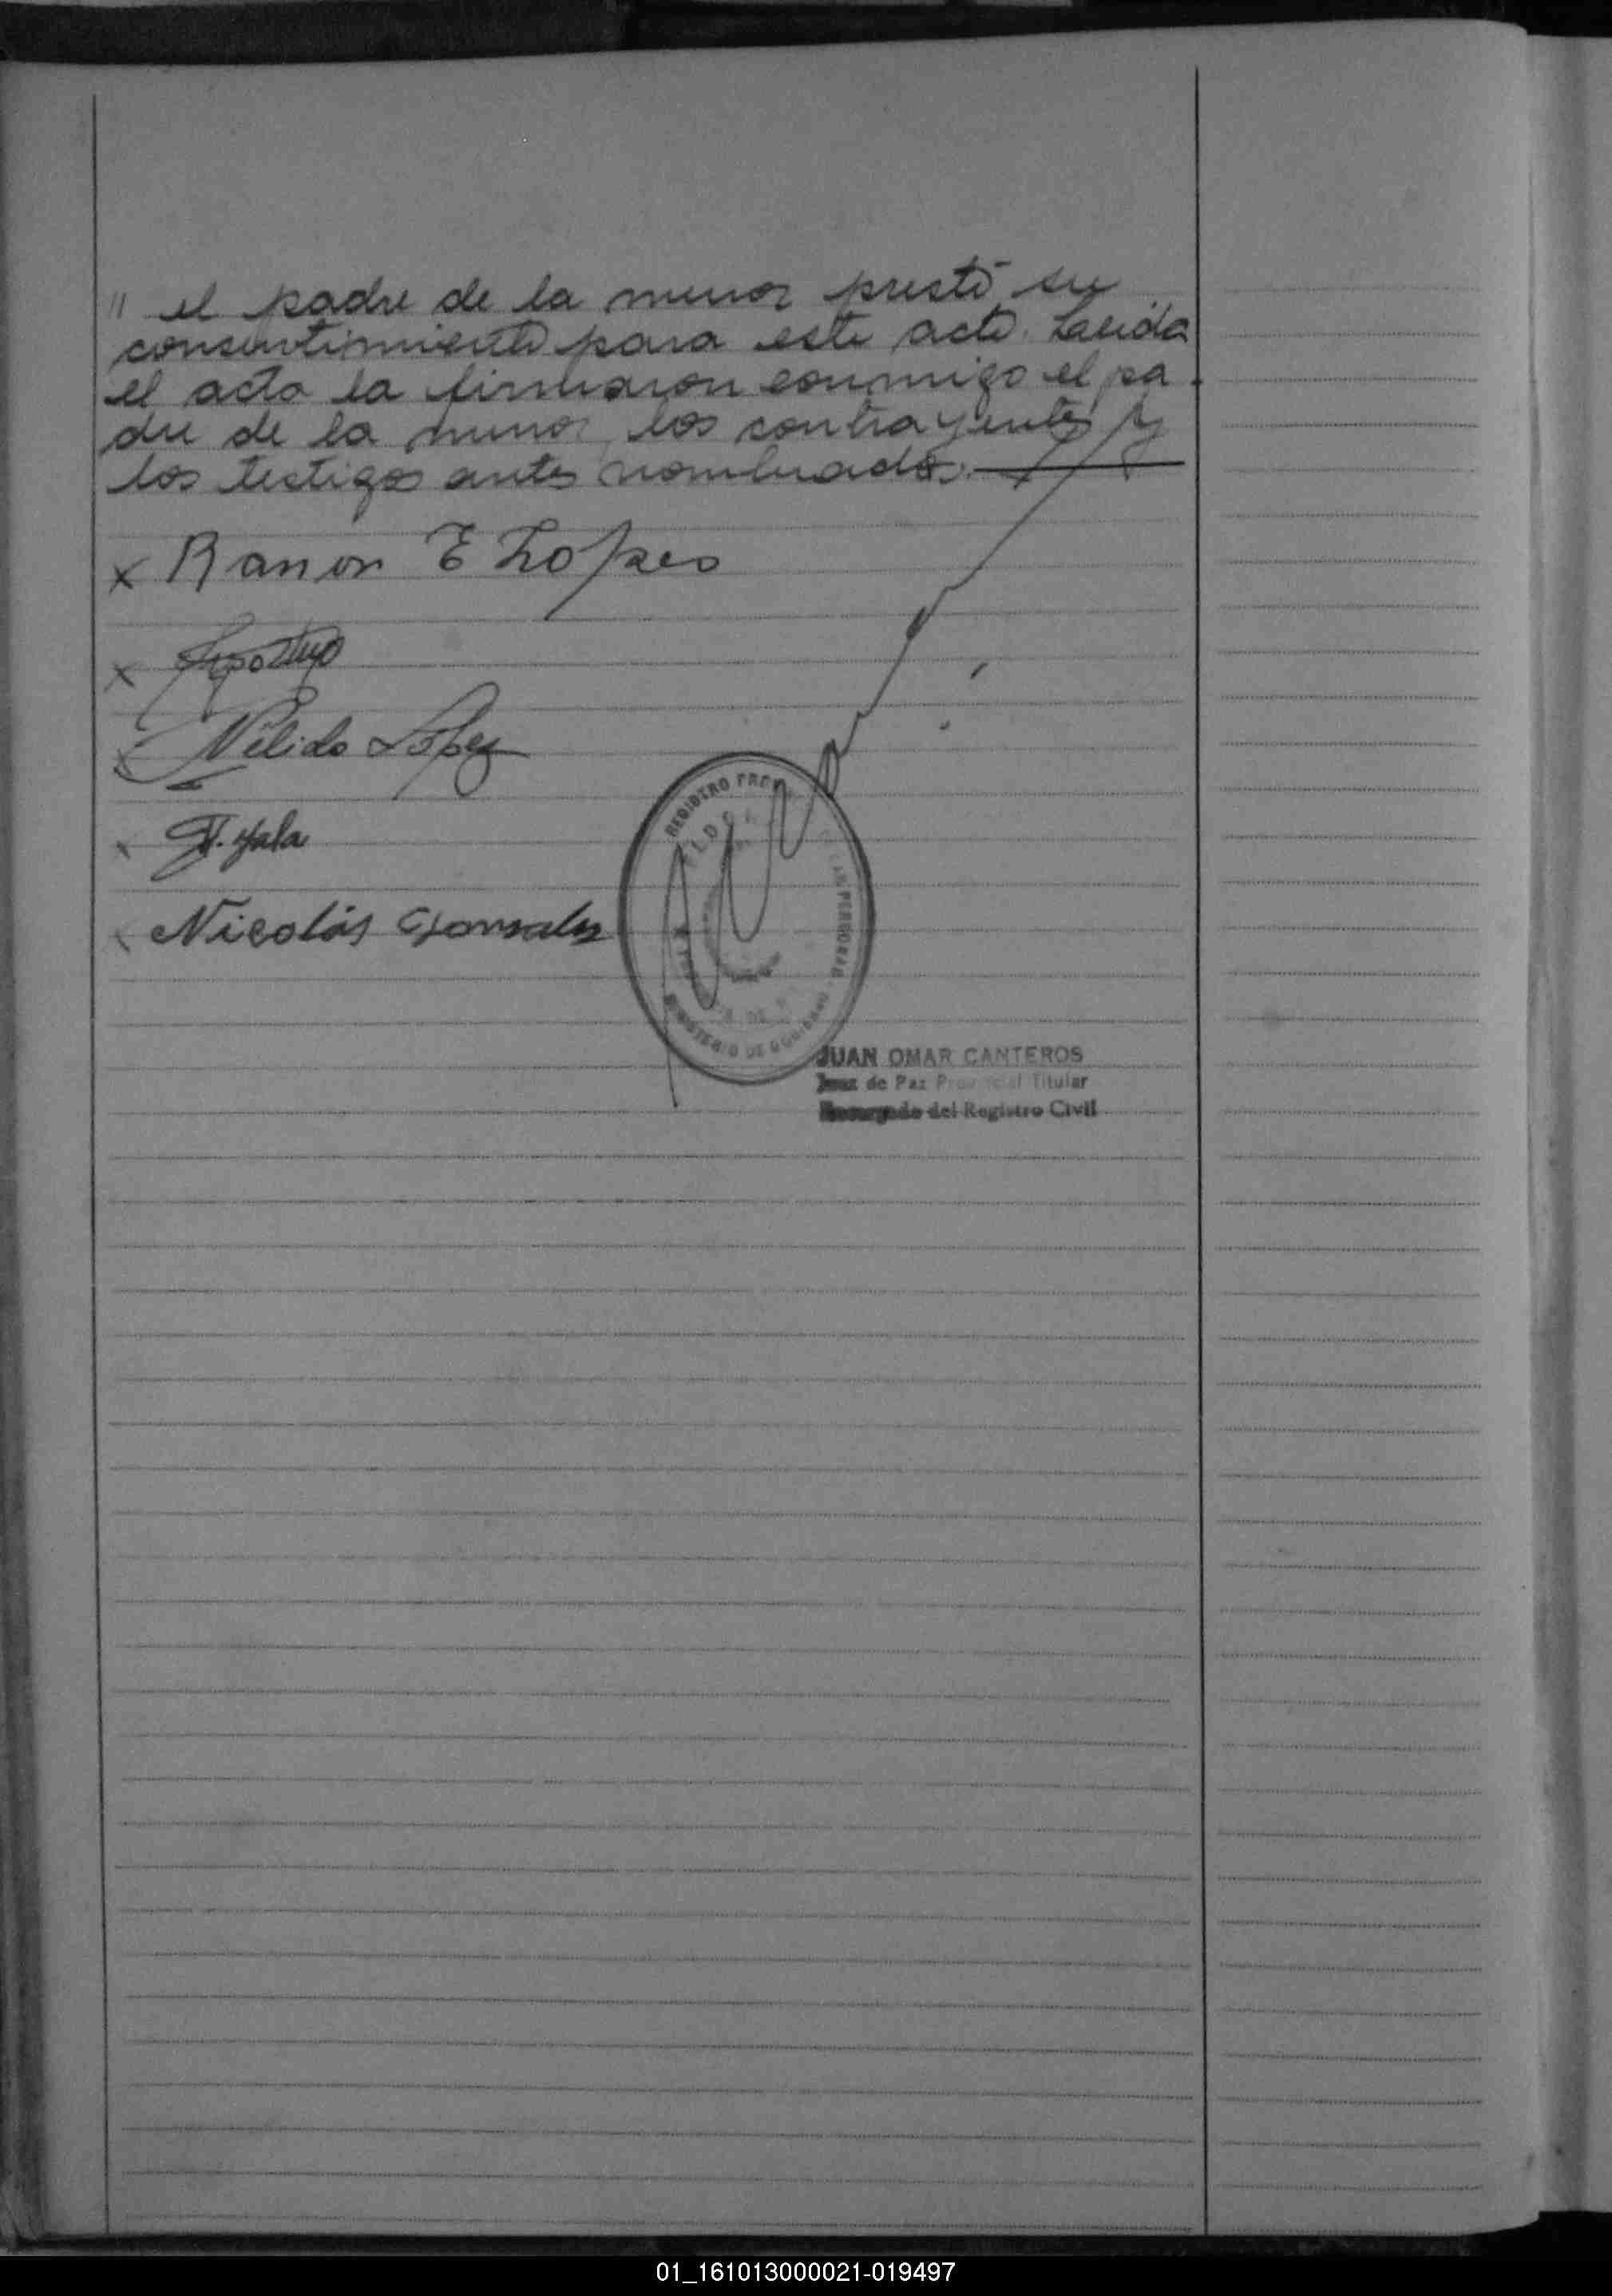 " el padre de la menor prestó su
consentimiento para este acto. Leída
el acta la firmaron conmigo el pa
dre de la menor, los contrayentes y
los testigos antes nombrados.
x Ramon E Lopes
x
x Nélida López
x
x Nicolás Gonsales
REGISTRO
ELDO
DE LAS PERSONAS
MINISTERIO DE GOBIERNO
JUAN OMAR CANTEROS
Juez de Paz Provincial Titular
Encargado del Registro Civil
01_161013000021-019497